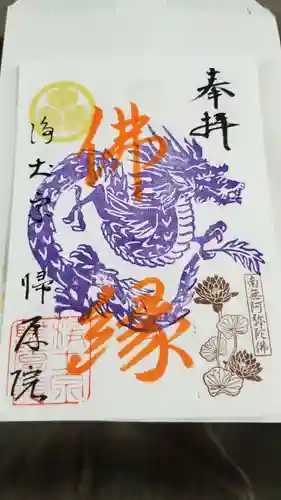 奉拝
佛縁
浄土宗 帰原院
南無阿弥陀佛